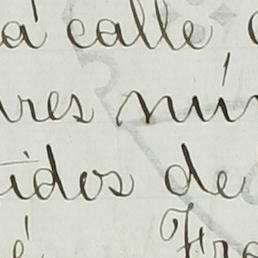 a calle
res nú
idos de
é Fra